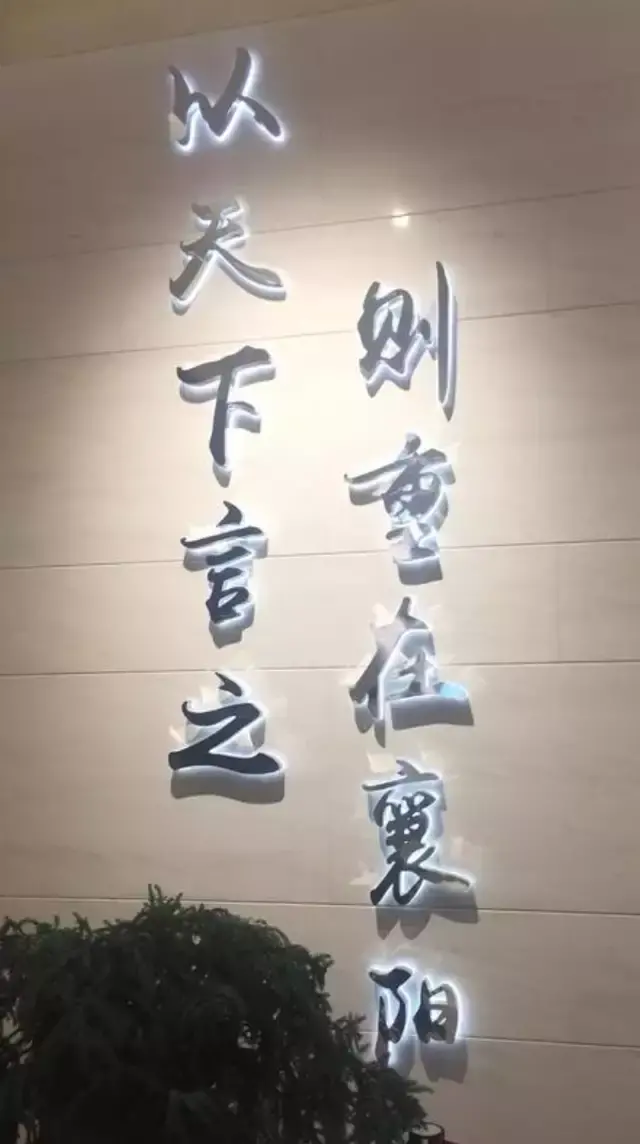 以天下言之
则重在襄阳